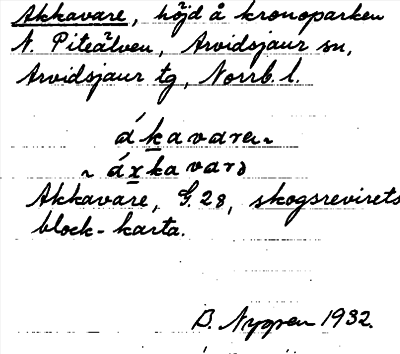 Akkavare, höjd å kronoparken
N. Piteälven, Arvidsjaur sn,
Arvidsjaur tg, Norrb. l.
ákavaren
~ áxkavarə
Akkavare, G. 28, skogsrevirets
block-karta.
B. Nygren 1932.